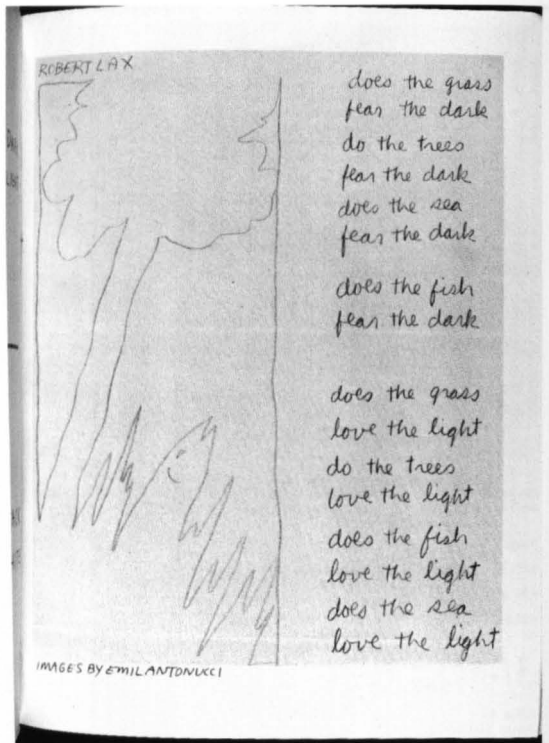 ROBERT LAX
does the grass
fear the dark
do the trees
fear the dark
does the sea
fear the dark
does the fish
fear the dark
does the grass
love the light
do the trees
love the light
does the fish
love the light
does the sea
love the light
IMAGES BY EMIL ANTONUCCI